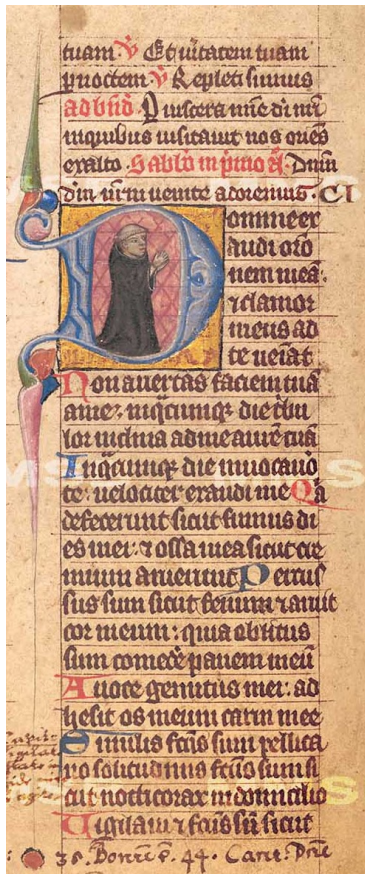 tuam. V Et uitatem tuam
p noctem. V Repleti sumus
ad bñd. P uiscera mie di nri
in quibus uisitauit nos oriēs
exalto. Sabbo in pmo Dnm
dm nrm uenite adoremus. CI
Domine ex
audi orō
nem meā.
7 clamor
meus ad
te ueiat
Non auertas faciem tuā
a me: in qcumqz die tbu
lor inclina ad me aurē tuā
In qcumqz die inuocauo
te: uelociter exaudi me Qā
defecerunt sicut fumus di
es mei: 7 ossa mea sicut cre
mium aruerunt Percus
sus sum sicut fenum 7 aruit
cor meum: quia oblitus
sum comedē panem meū
A uoce gemitus mei: ad
hesit os meum carni mee
Similis fcūs sum pellica
no solitudinis fcūs sum si
cut nocticorax in domicilio
Uigilaui 7 fcūs sū sicut